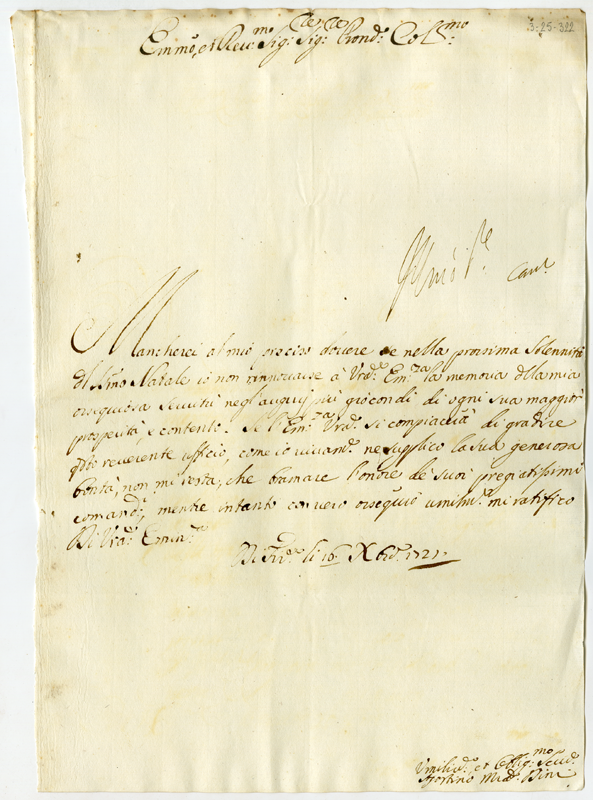 3-25-322
Em̃mo, et Rev:mo Sig: Sig: Prone Col:mo
Mancherei al mio preciso dovere se nella prossima Solennità
del S.mo Natale io non rinnovassi à Vra: Em:za la memoria della mia
ossequiosa servitù negl'augurj più giocondi di ogni sua maggior
prosperità, e contento. Se l'Em:za Vra: si compiacerà di gradire
q̃sto reverente ufficio, come io vivam:e ne supplico la sua generosa
bontà, non mi resta, che bramare l'onore de' suoi pregiatissimi
comandi, mentre intanto con vero ossequio umilm:e mi ratifico
Di Vra: Emin:za
li 16 Xbre: 1721
Umiliss:o et Obblig:mo Serv:e
Agostino Bini